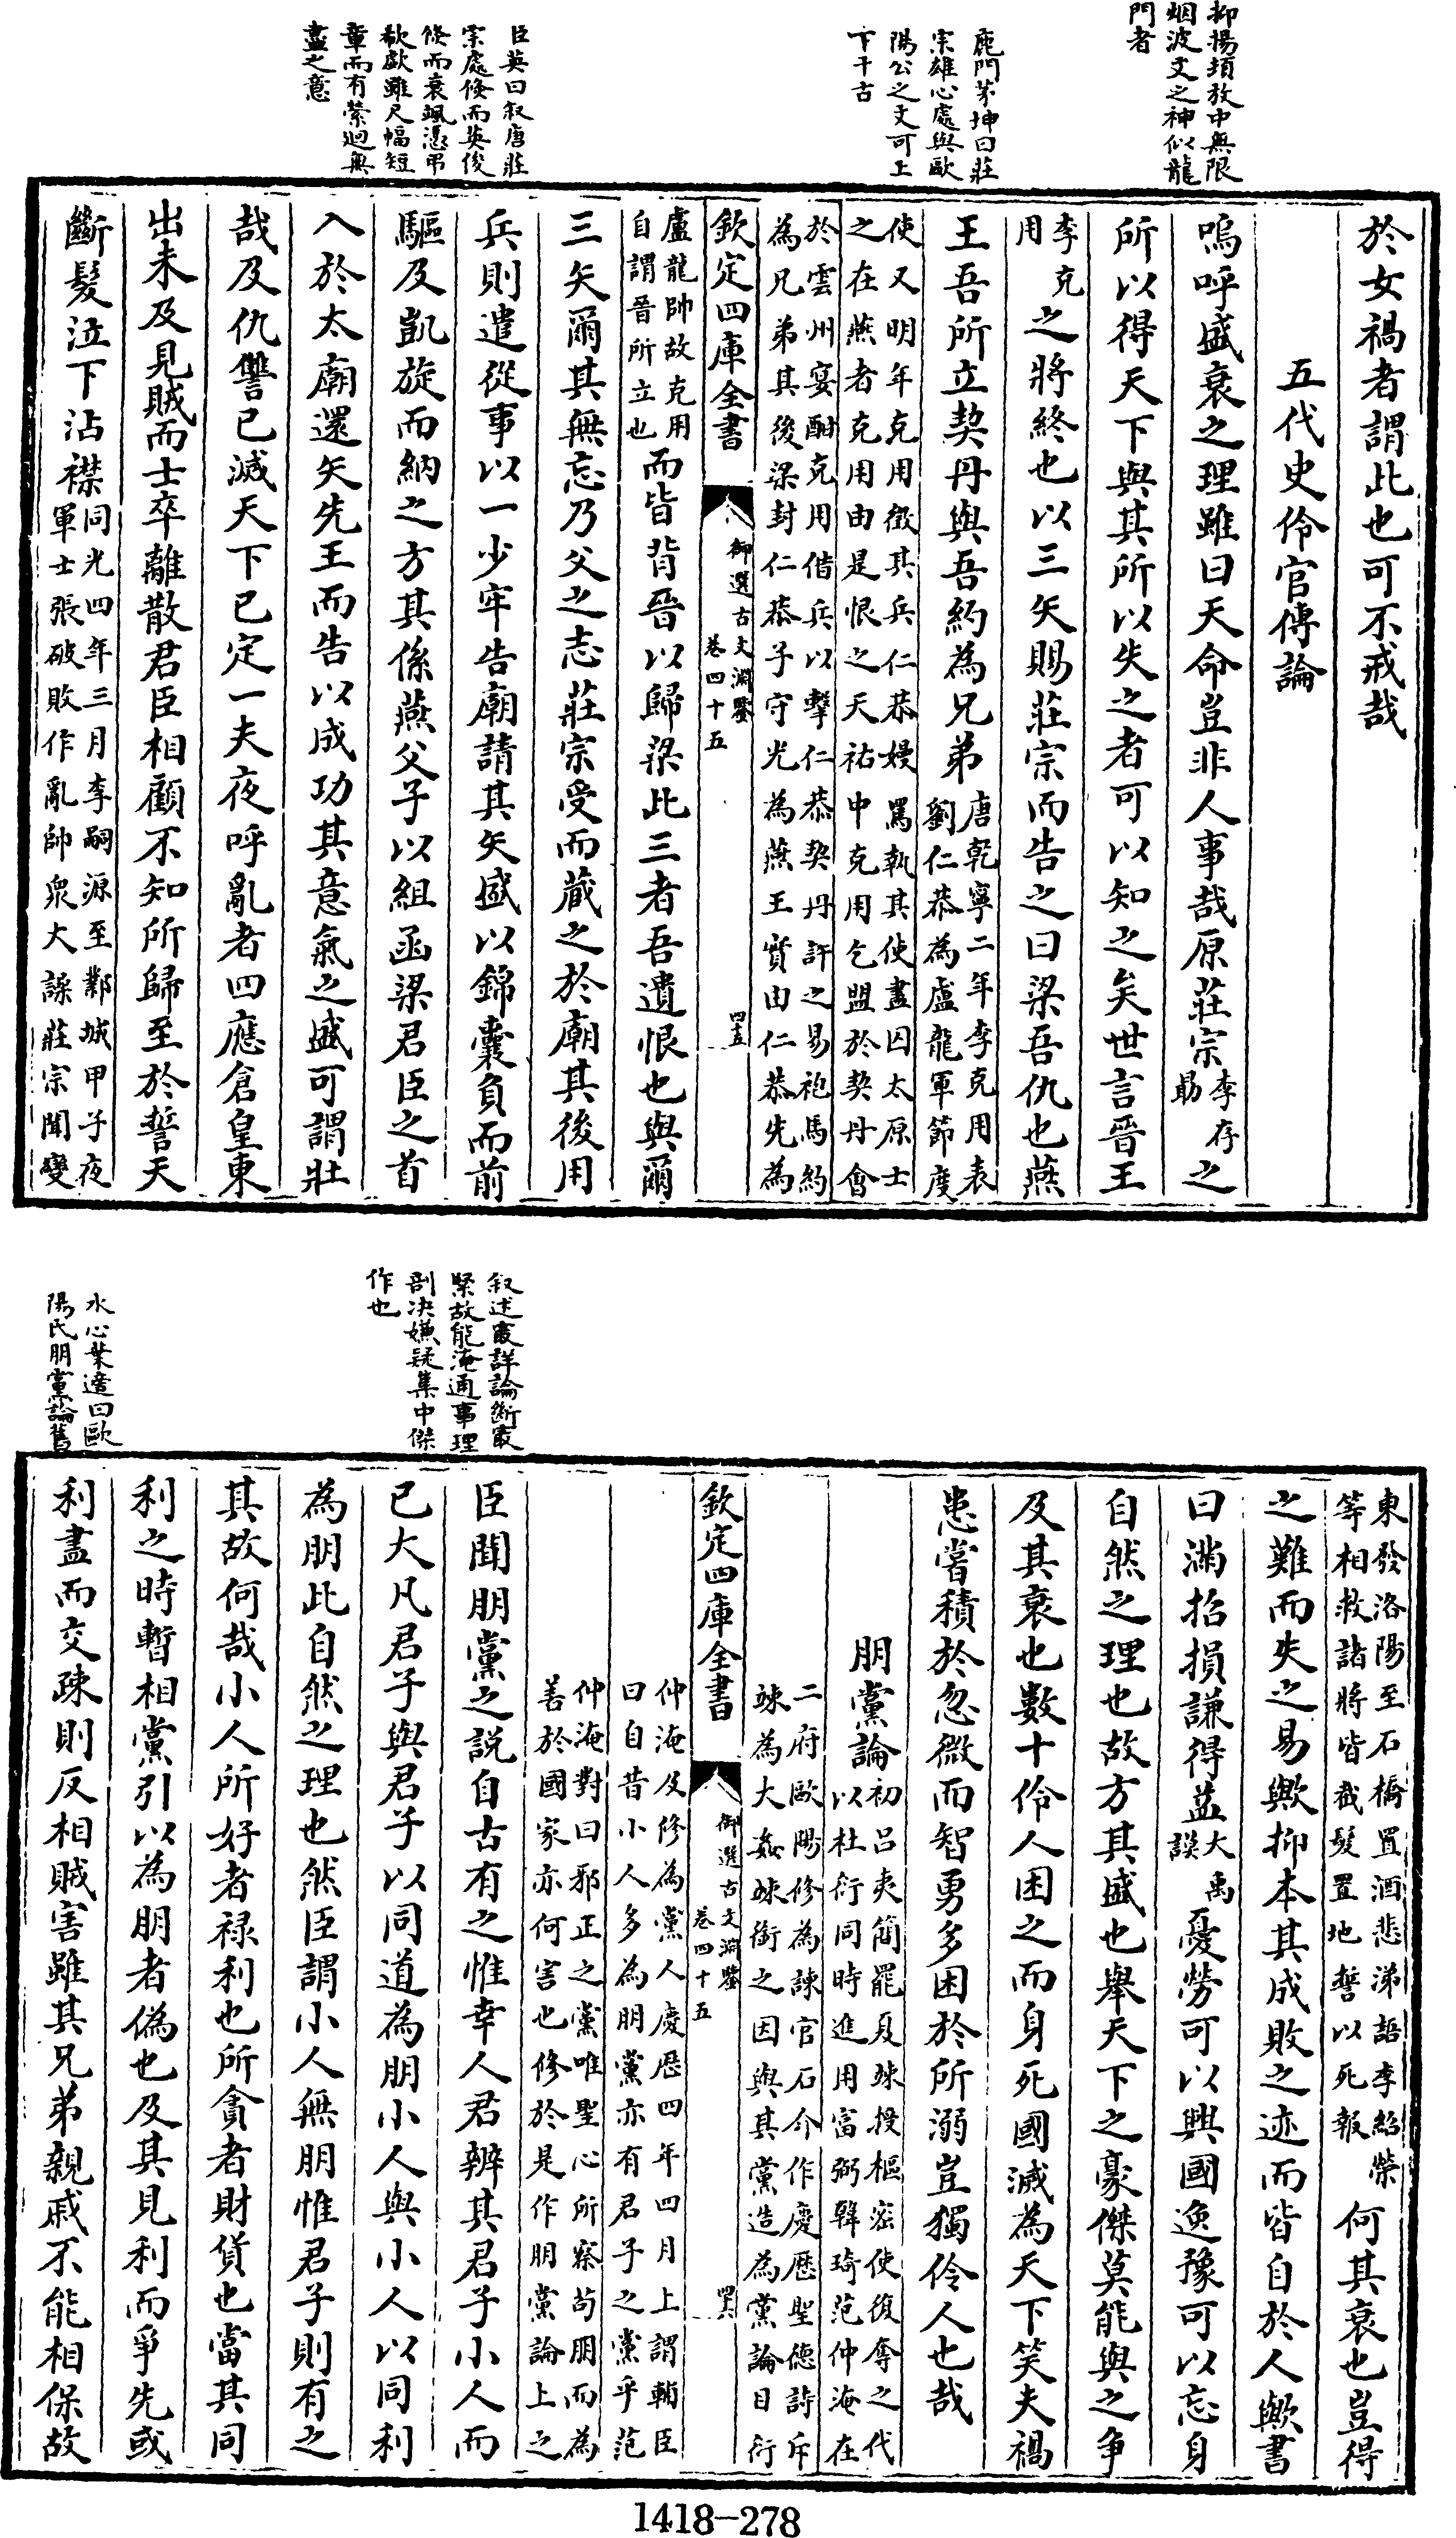 抑揚頓放中無限
烟波文之神似龍
門者
鹿門茅坤曰莊
宗雄心處與歐
陽公之文可上
下千古
臣英曰叙唐莊
宗處倐而英俊
倐而衰颯憑弔
欷歔雖尺幅短
章而有縈迴無
盡之意
於女禍者謂此也可不戒哉
五代史伶官傳論
嗚呼盛衰之理雖曰天命豈非人事哉原莊宗李存勗之
所以得天下與其所以失之者可以知之矣世言晉王
李克用之將終也以三矢賜莊宗而告之曰梁吾仇也燕
王吾所立契丹與吾約為兄弟唐乾寧二年李克用表
劉仁恭為盧龍軍節度
使又明年克用徵其兵仁恭嫚罵執其使盡囚太原士
之在燕者克用由是恨之天祐中克用乞盟於契丹會
於雲州宴酣克用借兵以擊仁恭契丹許之易袍馬約
為兄弟其後梁封仁恭子守光為燕王實由仁恭先為
欽定四庫全書
御選古文淵鑒
卷四十五
四五
盧龍帥故克用
自謂晉所立也而皆背晉以歸梁此三者吾遺恨也與爾
三矢爾其無忘乃父之志莊宗受而藏之於廟其後用
兵則遣從事以一少牢告廟請其矢盛以錦囊負而前
驅及凱旋而納之方其係燕父子以組函梁君臣之首
入於太廟還矢先王而告以成功其意氣之盛可謂壯
哉及仇讐已滅天下已定一夫夜呼亂者四應倉皇東
出未及見賊而士卒離散君臣相顧不知所歸至於誓天
斷髮泣下沾襟同光四年三月李嗣源至鄴城甲子夜
軍士張破敗作亂帥衆大譟莊宗聞變
叙述最詳論斷最
緊故能淹通事理
剖决嫌疑集中傑
作也
水心葉適曰歐
陽氏朋黨論舊
東發洛陽至石橋置酒悲涕語李紹榮
等相救諸將皆截髮置地誓以死報何其衰也豈得
之難而失之易歟抑本其成敗之迹而皆自於人歟書
曰滿招損謙得益大禹謨憂勞可以興國逸豫可以忘身
自然之理也故方其盛也舉天下之豪傑莫能與之爭
及其衰也數十伶人困之而身死國滅為天下笑夫禍
患嘗積於忽微而智勇多困於所溺豈獨伶人也哉
朋黨論初呂夷簡罷夏竦授樞密使復奪之代
以杜衍同時進用富弼韓琦范仲淹在
二府歐陽修為諫官石介作慶歷聖德詩斥
竦為大姦竦銜之因與其黨造為黨論目衍
欽定四庫全書
御選古文淵鑒
卷四十五
四六
仲淹及修為黨人慶歷四年四月上謂輔臣
曰自昔小人多為朋黨亦有君子之黨乎范
仲淹對曰邪正之黨唯聖心所察苟朋而為
善於國家亦何害也修於是作朋黨論上之
臣聞朋黨之說自古有之惟幸人君辨其君子小人而
已大凡君子與君子以同道為朋小人與小人以同利
為朋此自然之理也然臣謂小人無朋惟君子則有之
其故何哉小人所好者祿利也所貪者財貨也當其同
利之時暫相黨引以為朋者偽也及其見利而爭先或
利盡而交疎則反相賊害雖其兄弟親戚不能相保故
1418-278